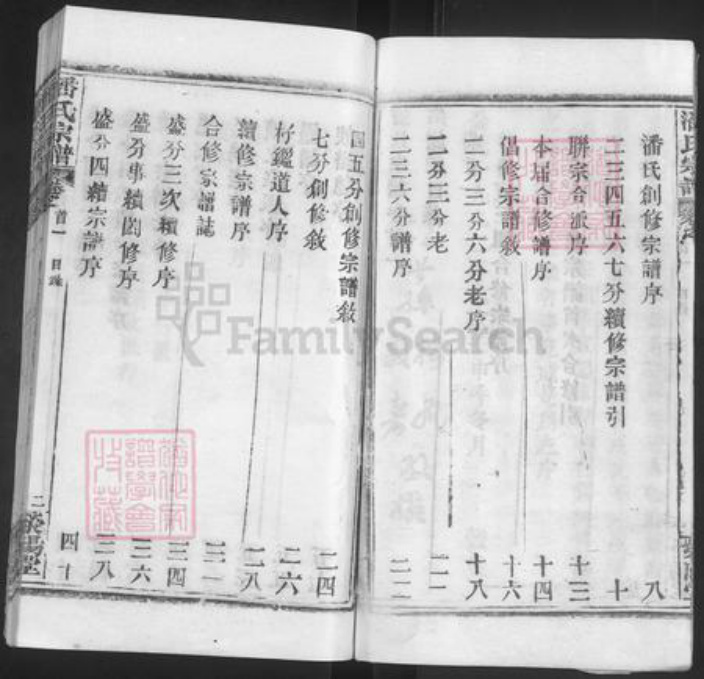 潘氏創修宗譜序 八
二三四五六七分續修宗譜引 十
聯宗合派序 十三
本届合修譜序 十四
倡修宗譜敘 十六
二分三分六分老序 十八
二分三分老
二三六分譜序 二二
四五分創修宗譜敘 二四
七分創修敘 二六
杍鑑道人序 二八
續修宗譜序
合修宗譜誌 三一
盛分三次續修序 三四
盛分
續
修序 三六
盛分四續宗譜序 三八
四十
潘氏宗譜
卷首一 目錄
二
滎陽堂
FamilySearch